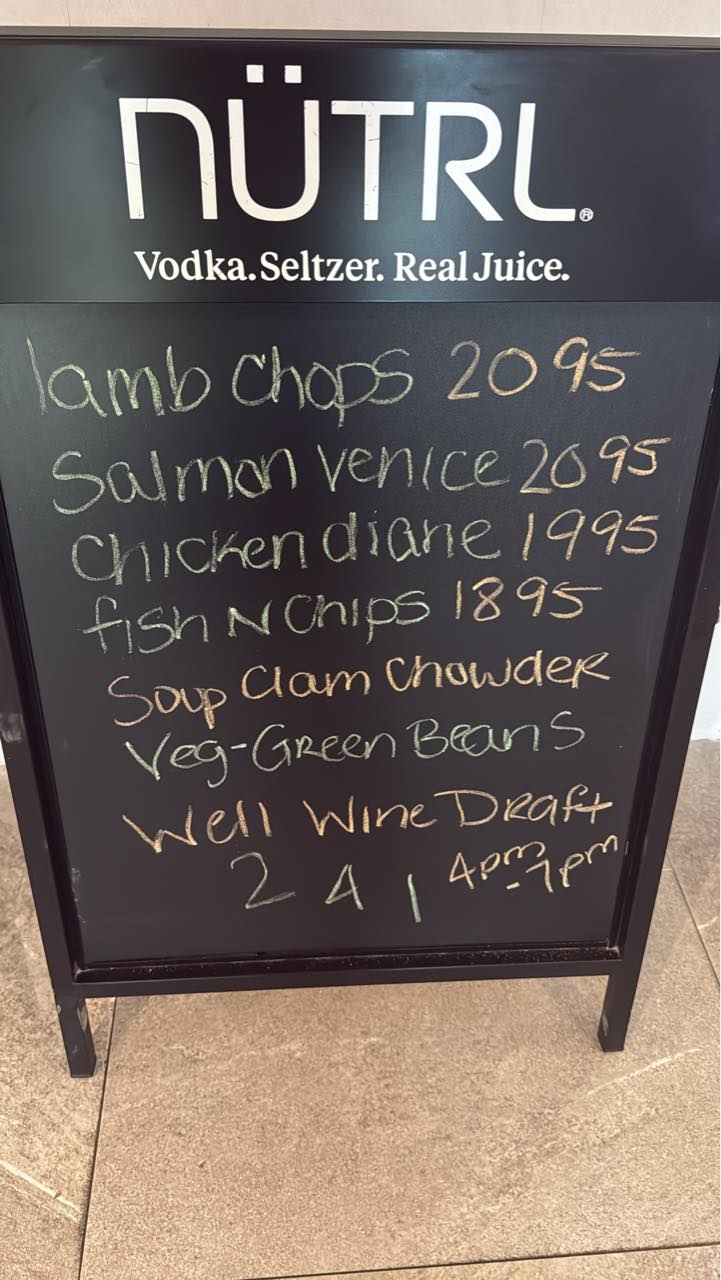 NÜTRL®
Vodka. Seltzer. Real Juice.
lamb chops 2095
Salmon Venice 2095
Chicken diane 1995
fish N Chips 1895
Soup Clam Chowder
Veg-Green Beans
Well Wine Draft
2 4 1 4pm-7pm